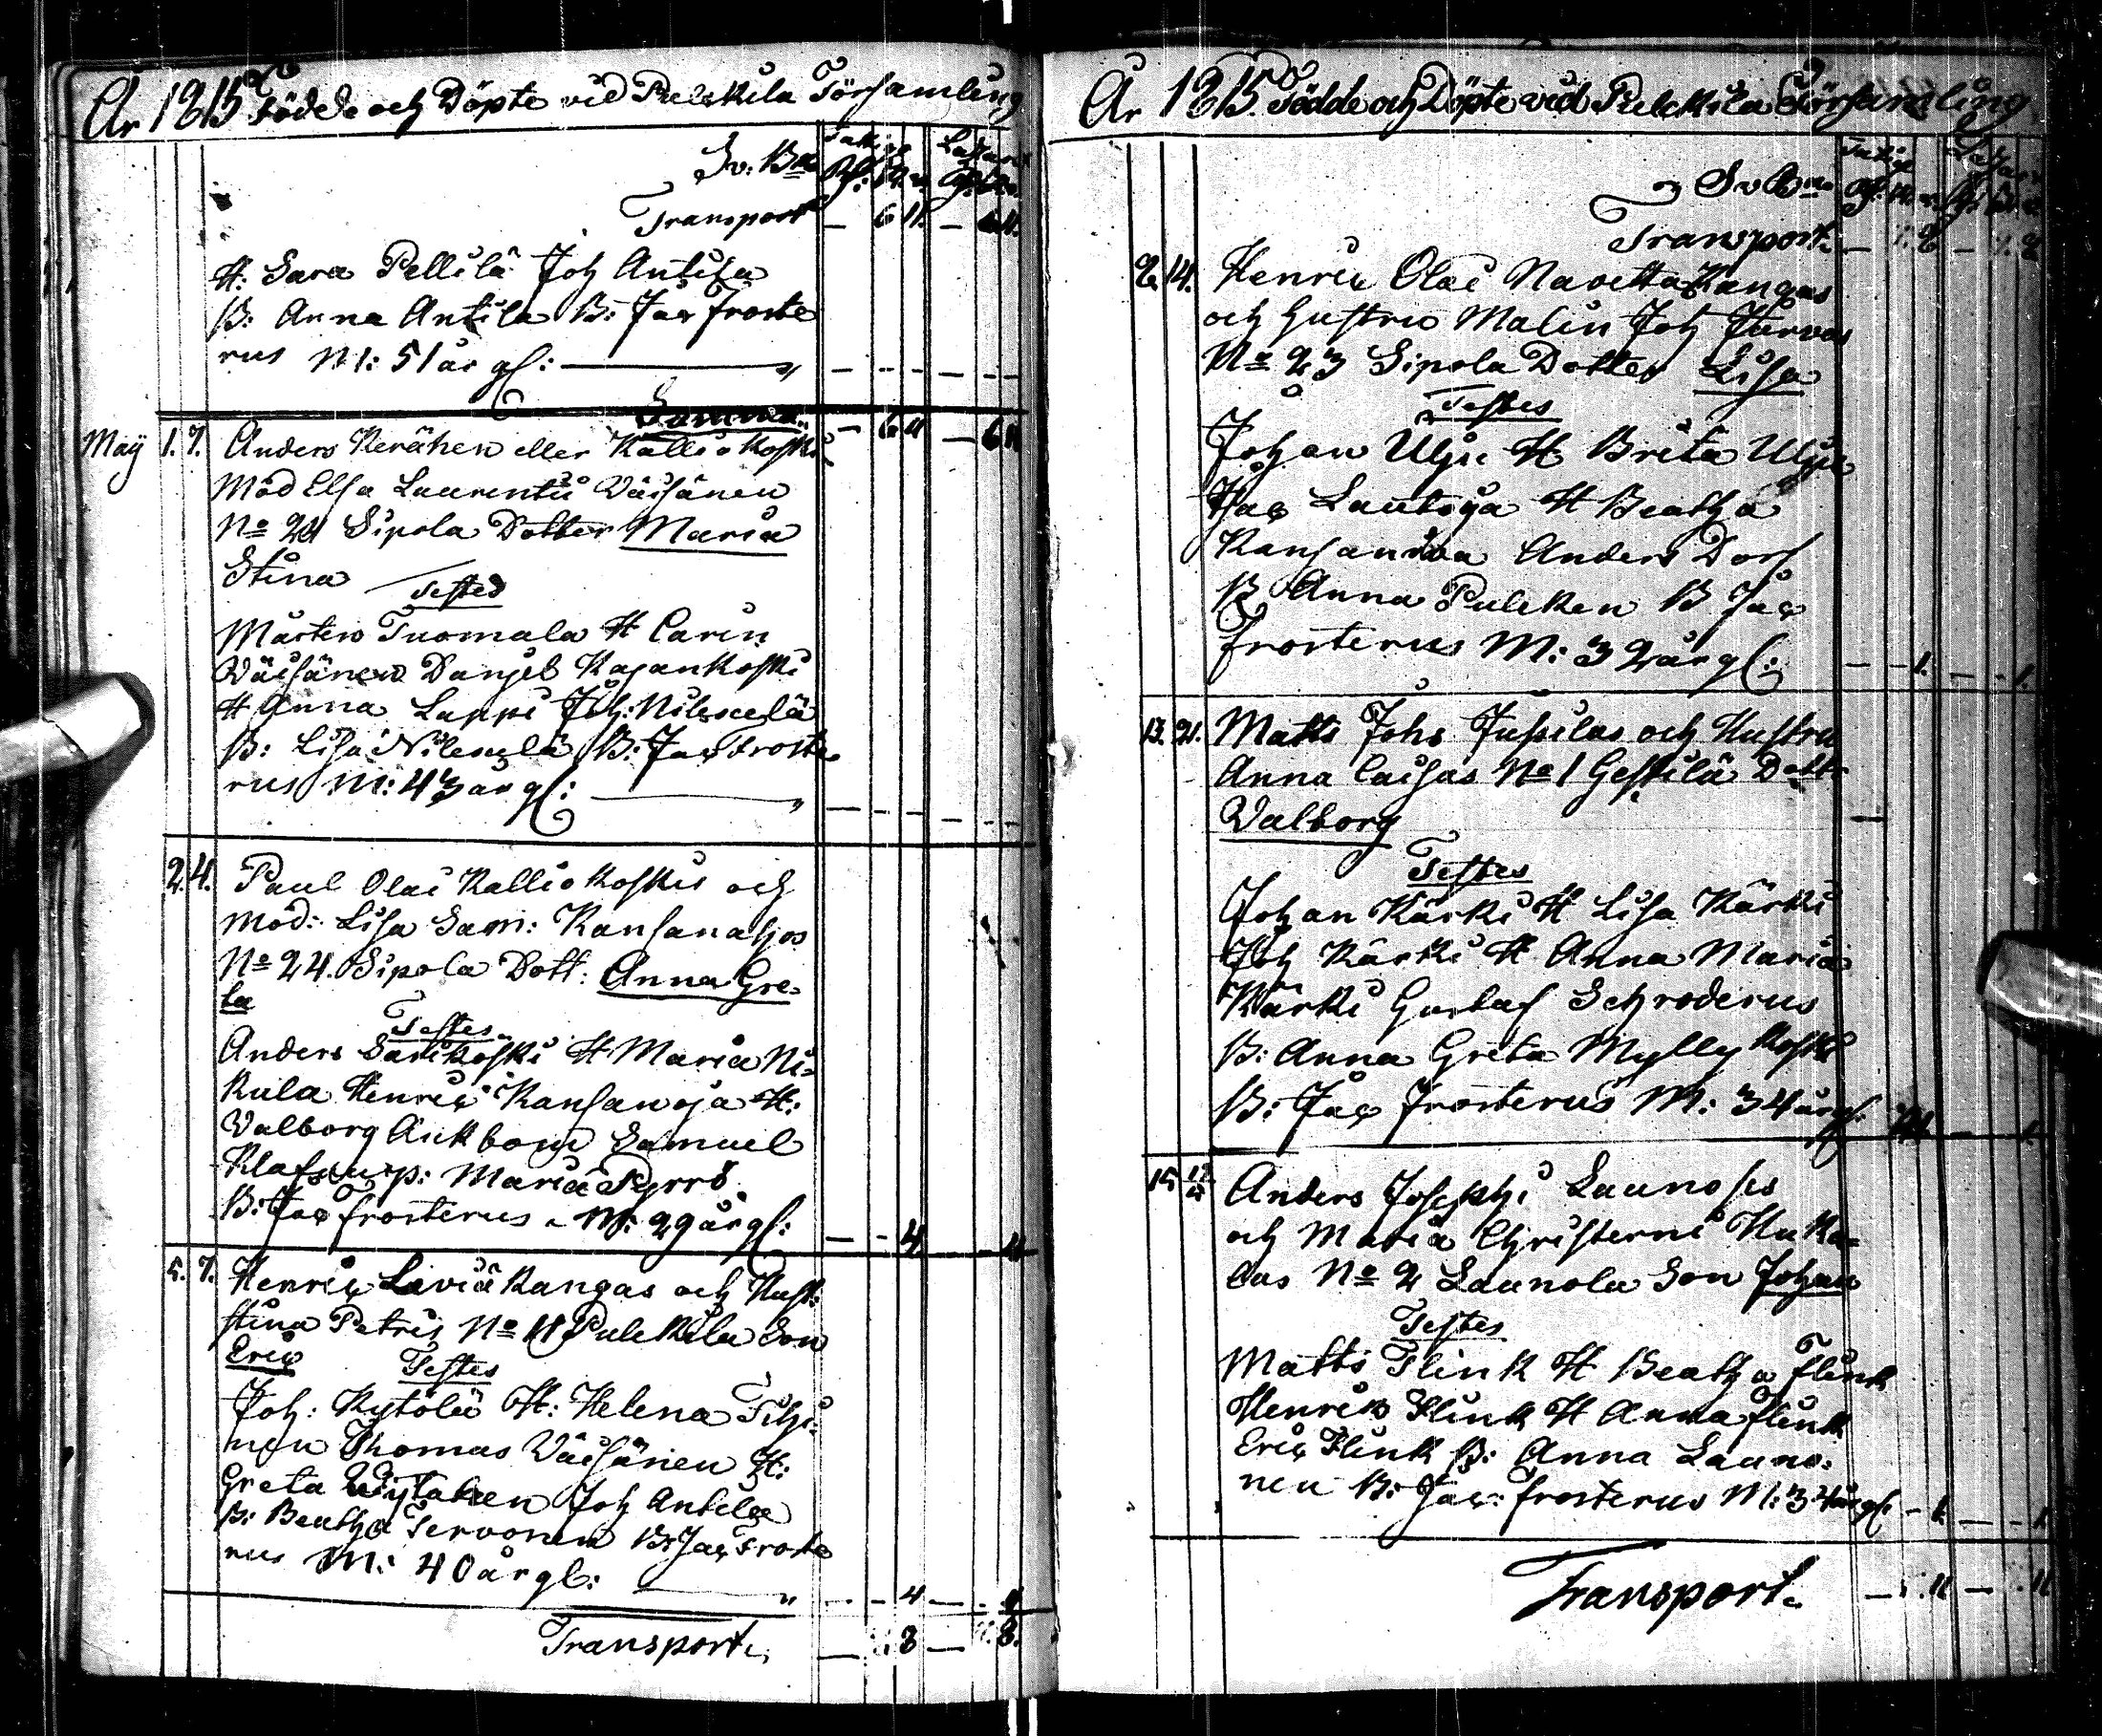 År 1815 Födde och Döpte vid Pulckila Församling
Sv: B:
Transport — 6 11. — 6 11.
H: Sara Pellilä Joh Antila
B: Anna Antila B: Jac Froste
rus M: 51 år gl:
Summa — 6 11 — 6 11
May 1. 7. Anders Kerähen eller Kalliokoski
Mod Elsa Laurentii Väisänen
No 24 Sipola Dotter Maria
Stina Testes
Mårten Tuomala H Carin
Väisänen Danjel Kajankoski
H Anna Lappi Joh: Nilsuelä
B: Lisa B: Jac Froste
rus M: 43 år gl:
2. 4. Paul Olai Kalliokoskis och
Mod: Lisa Sam: Kansanahos
No 24. Sipola Dott: Anna Gre-
ta
Testes
Anders Sarikoski H Maria Ni-
kula Henric Kansanoja H:
Valborg Aickbom Samuel
p: Maria Pyrrö
B: Jac Frosterus M: 29 år gl: — - 4 - 4
5. 7. Henric Kangas och Hust:
Stina Petris No 11 Pulckila Son
Eric Testes
Joh: Kytölä H: Helena Tihi-
nen Thomas Väisänen H:
Greta Joh Antila
B: Beatha Tervonen B: Jac Froste
rus M: 40 år gl: - 4 — - 4
Transport — 8 — 8.
År 1815. Födde och Döpte vid Pulckila Församling
Transport
9. 14. Henric Olai Navetta Kangas
och Hustru Malin Joh
No 23 Sipola Dotter Lisa
Testes
Johan Ulju H Brita Ulju
Jac Lautoja H Beatha
Anders Dorf
B Anna Pulcken B Jac
Frosterus M: 32 år gl: — - 1. — - 1.
13. 21. Matts Johs Jussilas och Hustru
Anna Caisas No 1 Gestilä Dott
Valborg
Testes
Johan Kärki H Lisa Kärki
Joh Kärki H Anna Maria
Kärki Gustaf Schroderus
B: Anna Greta Myllykoski
B: Jac Frosterus M: 34 år gl:
15 Anders Josephi Launosis
och Maria Christerni Huka-
las No 2 Launola Son Johan
Testes
Matts Flink H Beatha Flink
Henrik Flink H Anna Flink
Eric Flink B: Anna Launo-
nen B: Jac: Frosterus M: 34 år gl: - 1. — 1.
Transport — 11 — 11